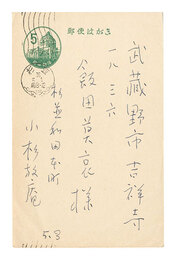 郵便はがき
5
武蔵野市吉祥寺
一八三六
飯田莫哀様
杉並和田本町
小杉放庵
5.3